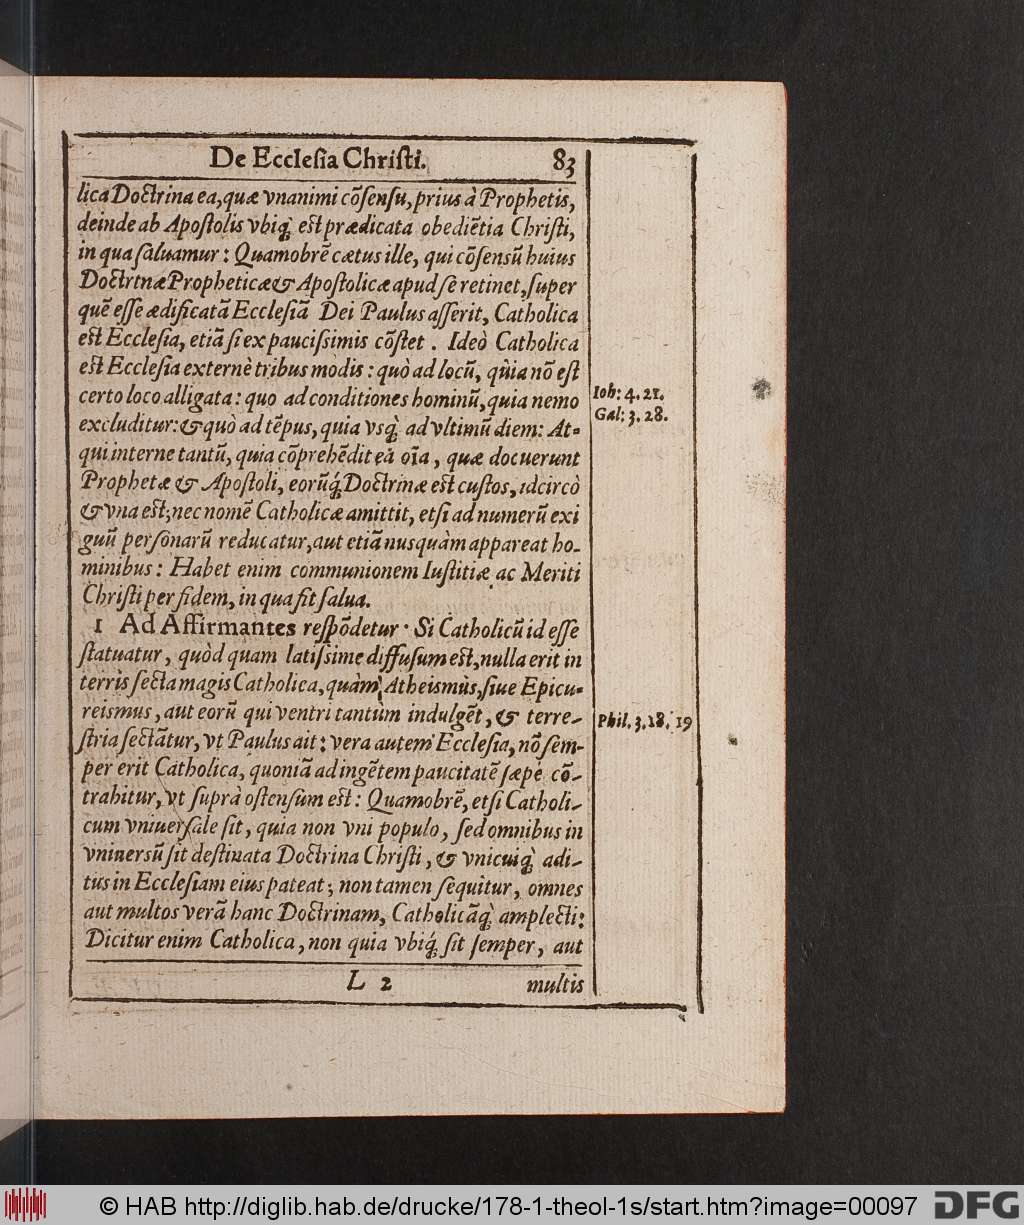 De Ecclesia Christi. 83
lica Doctrina ea, quæ vnanimi cõsensu, prius à Prophetis,
deinde ab Apostolis vbiq; est prædicata obediẽtia Christi,
in qua saluamur: Quamobrẽ cætus ille, qui cõsensũ huius
Doctrinæ Propheticæ & Apostolicæ apud se retinet, super
quẽ esse ædificatã Ecclesiã Dei Paulus asserit, Catholica
est Ecclesia, etiã si ex paucissimis cõstet. Ideò Catholica
est Ecclesia externè tribus modis: quò ad locũ, quia nõ est
certo loco alligata: quo ad conditiones hominũ, quia nemo
excluditur: & quò ad tẽpus, quia vsq; ad vltimũ diem: At=
qui interne tantũ, quia cõprehẽdit ea oĩa, quæ docuerunt
Prophetæ & Apostoli, eorũq; Doctrinæ est custos, idcircò
& vna est, nec nomẽ Catholicæ amittit, etsi ad numerũ exi
guũ personarũ reducatur, aut etiã nusquàm appareat ho-
minibus: Habet enim communionem Iustitiæ ac Meriti
Christi per fidem, in qua fit salua.
1 Ad Affirmantes respõdetur. Si Catholicũ id esse
statuatur, quòd quam latissime diffusum est, nulla erit in
terris secta magis Catholica, quàm Atheismus, siue Epicu=
reismus, aut eorũ qui ventri tantùm indulgẽt, & terre-
stria sectãtur, vt Paulus ait: vera autem Ecclesia, nõ sem-
per erit Catholica, quoniã ad ingẽtem paucitatẽ sæpe cõ-
trahitur, vt suprà ostensum est: Quamobrẽ, etsi Catholi-
cum vniuersale sit, quia non vni populo, sed omnibus in
vniuersũ sit destinata Doctrina Christi, & vnicuiq; adi-
tus in Ecclesiam eius pateat; non tamen sequitur, omnes
aut multos verã hanc Doctrinam, Catholicãq; amplecti:
Dicitur enim Catholica, non quia vbiq; sit semper, aut
L 2 multis
Ioh: 4. 21.
Gal: 3. 28.
Phil. 3. 18. 19
© HAB http://diglib.hab.de/drucke/178-1-theol-1s/start.htm?image=00097 DFG